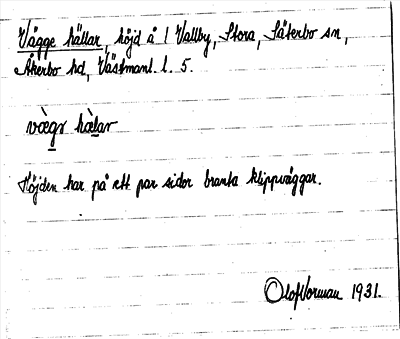 Vägge hällar, höjd å 1 Vallby, Stora, Säterbo sn,
Åkerbo hd, Västmanl. l. 5.
vægr hàlar
Höjden har på ett par sidor branta klippväggar.
Olof Norman 1931.